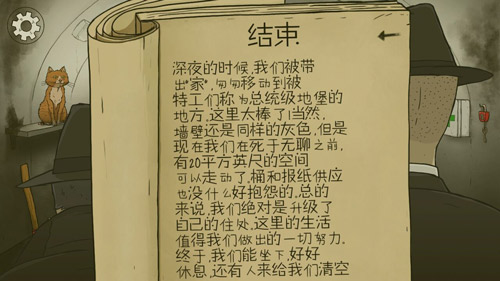 结束.
深夜的时候,我们被带
出"家",匆匆移动到被
特工们称为总统级地堡的
地方,这里太棒了!当然,
墙壁还是同样的灰色,但是
现在我们在死于无聊之前,
有20平方英尺的空间
可以走动了,桶和报纸供应
也没什么好抱怨的,总的
来说,我们绝对是升级了
自己的住处,这里的生活
值得我们做出的一切努力.
终于,我们能坐下,好好
休息,还有人来给我们清空